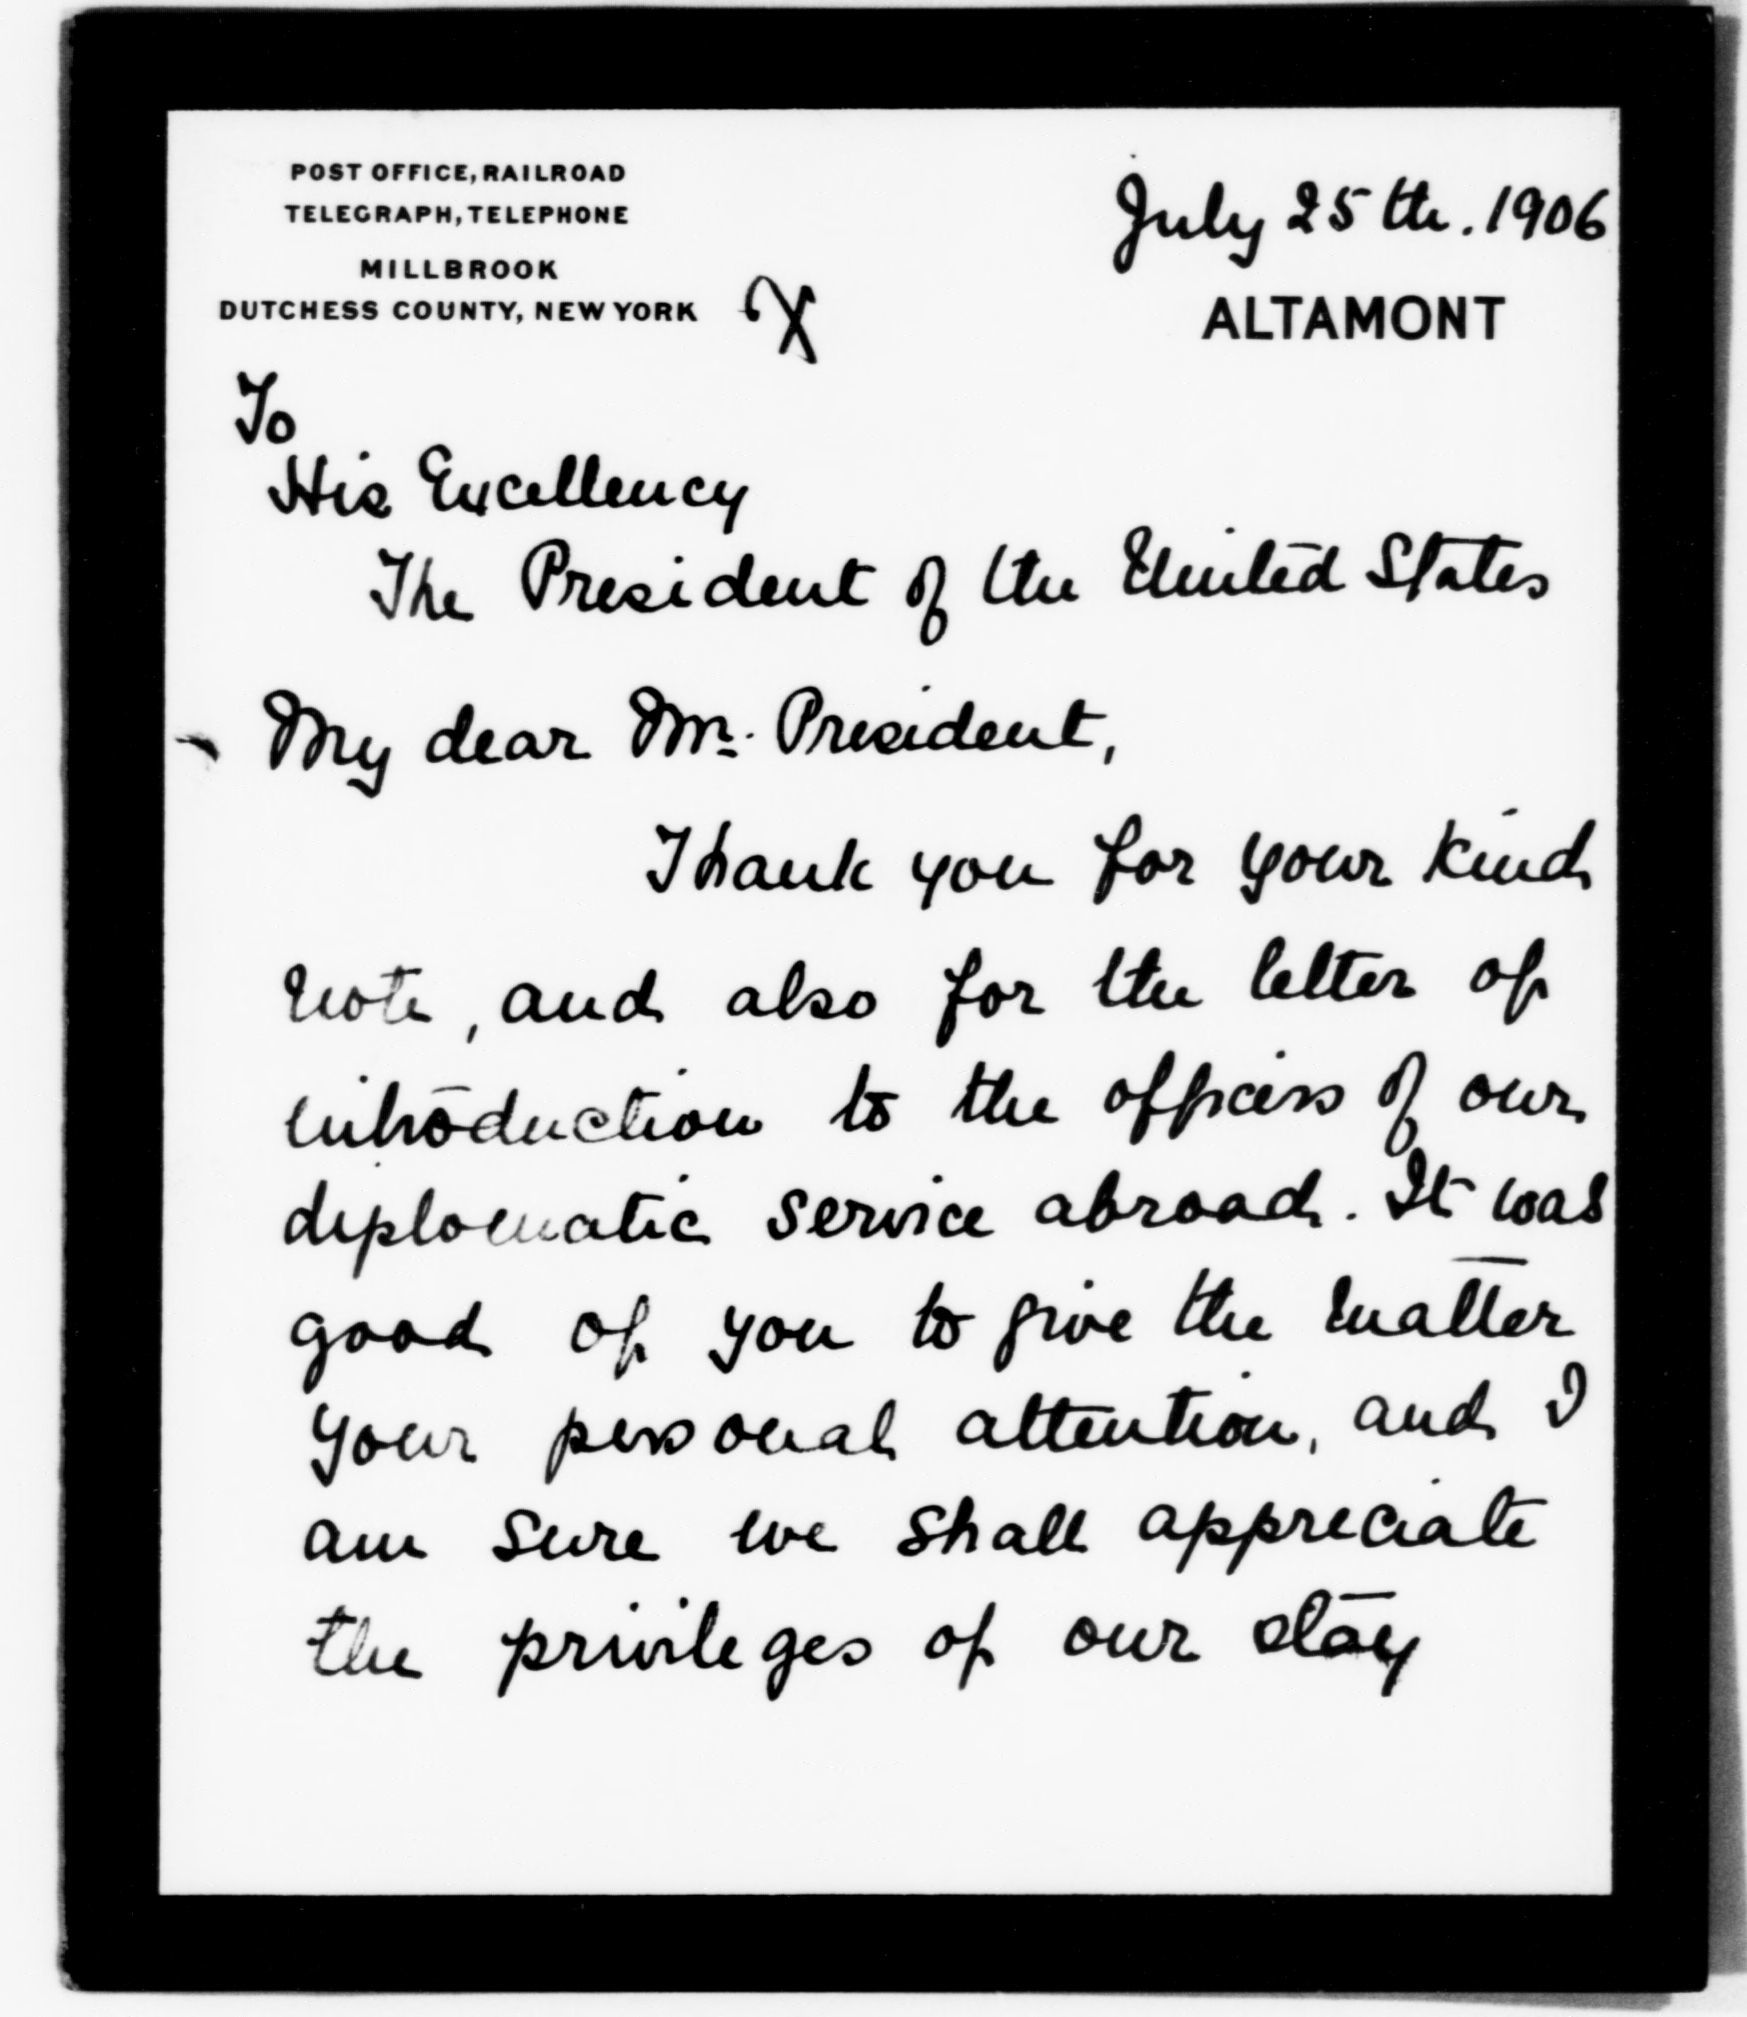 POST OFFICE, RAILROAD
TELEGRAPH, TELEPHONE
MILLBROOK
DUTCHESS COUNTY, NEW YORK
X
July 25th. 1906
ALTAMONT
To
His Excellency
The President of the United States
My dear Mr. President,
Thank you for your kind
note, and also for the letter of
introduction to the officers of our
diplomatic service abroad. It was
good of you to give the matter
your personal attention, and I
am sure we shall appreciate
the privileges of our stay